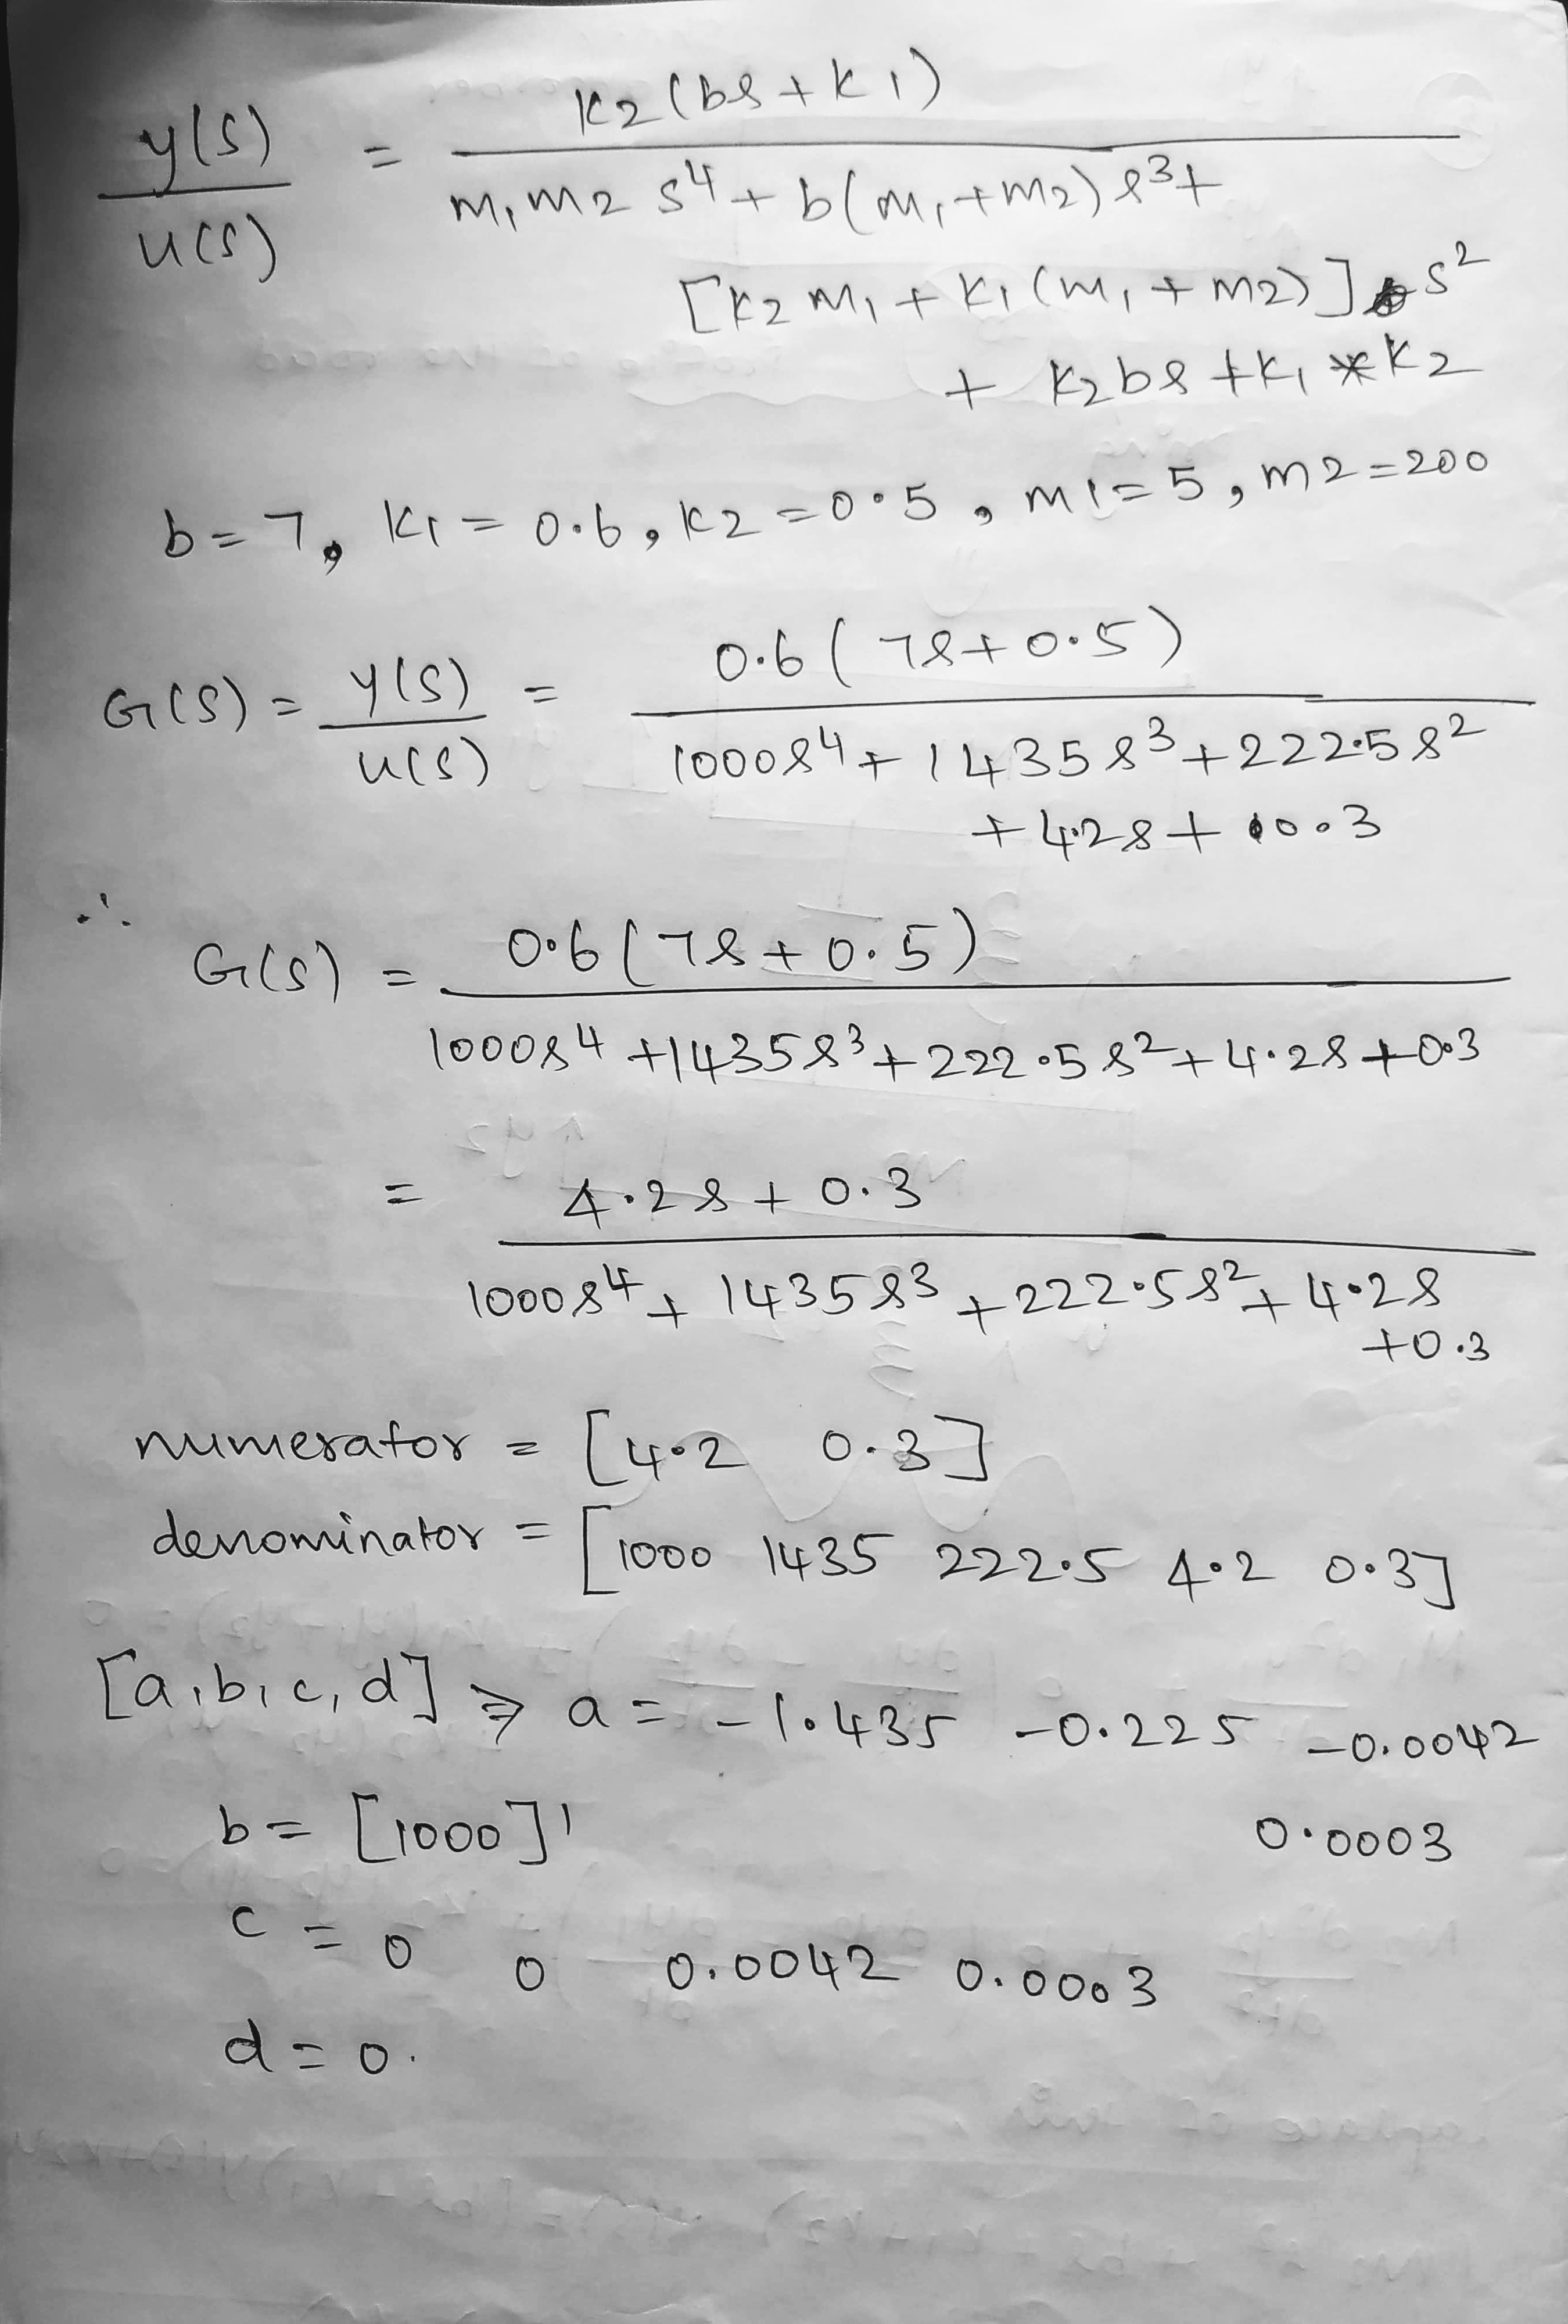 y(s) / u(s) = k2(bs+k1) / m1m2 s⁴ + b(m1+m2)s³ +
[k2m1 + k1(m1+m2)] s²
+ k2bs + k1 * k2
b=7, k1=0.6, k2=0.5, m1=5, m2=200
G(s) = y(s) / u(s) = 0.6(7s+0.5) / 1000s⁴ + 1435s³ + 222.5s²
+ 4.2s + 0.3
∴ G(s) = 0.6(7s+0.5) / 1000s⁴ + 1435s³ + 222.5s² + 4.2s + 0.3
= 4.2s + 0.3 / 1000s⁴ + 1435s³ + 222.5s² + 4.2s
+0.3
numerator = [4.2 0.3]
denominator = [1000 1435 222.5 4.2 0.3]
[a,b,c,d] ⇒ a = -1.435 -0.225 -0.0042
0.0003
b = [1000]'
c = 0 0 0.0042 0.0003
d = 0.